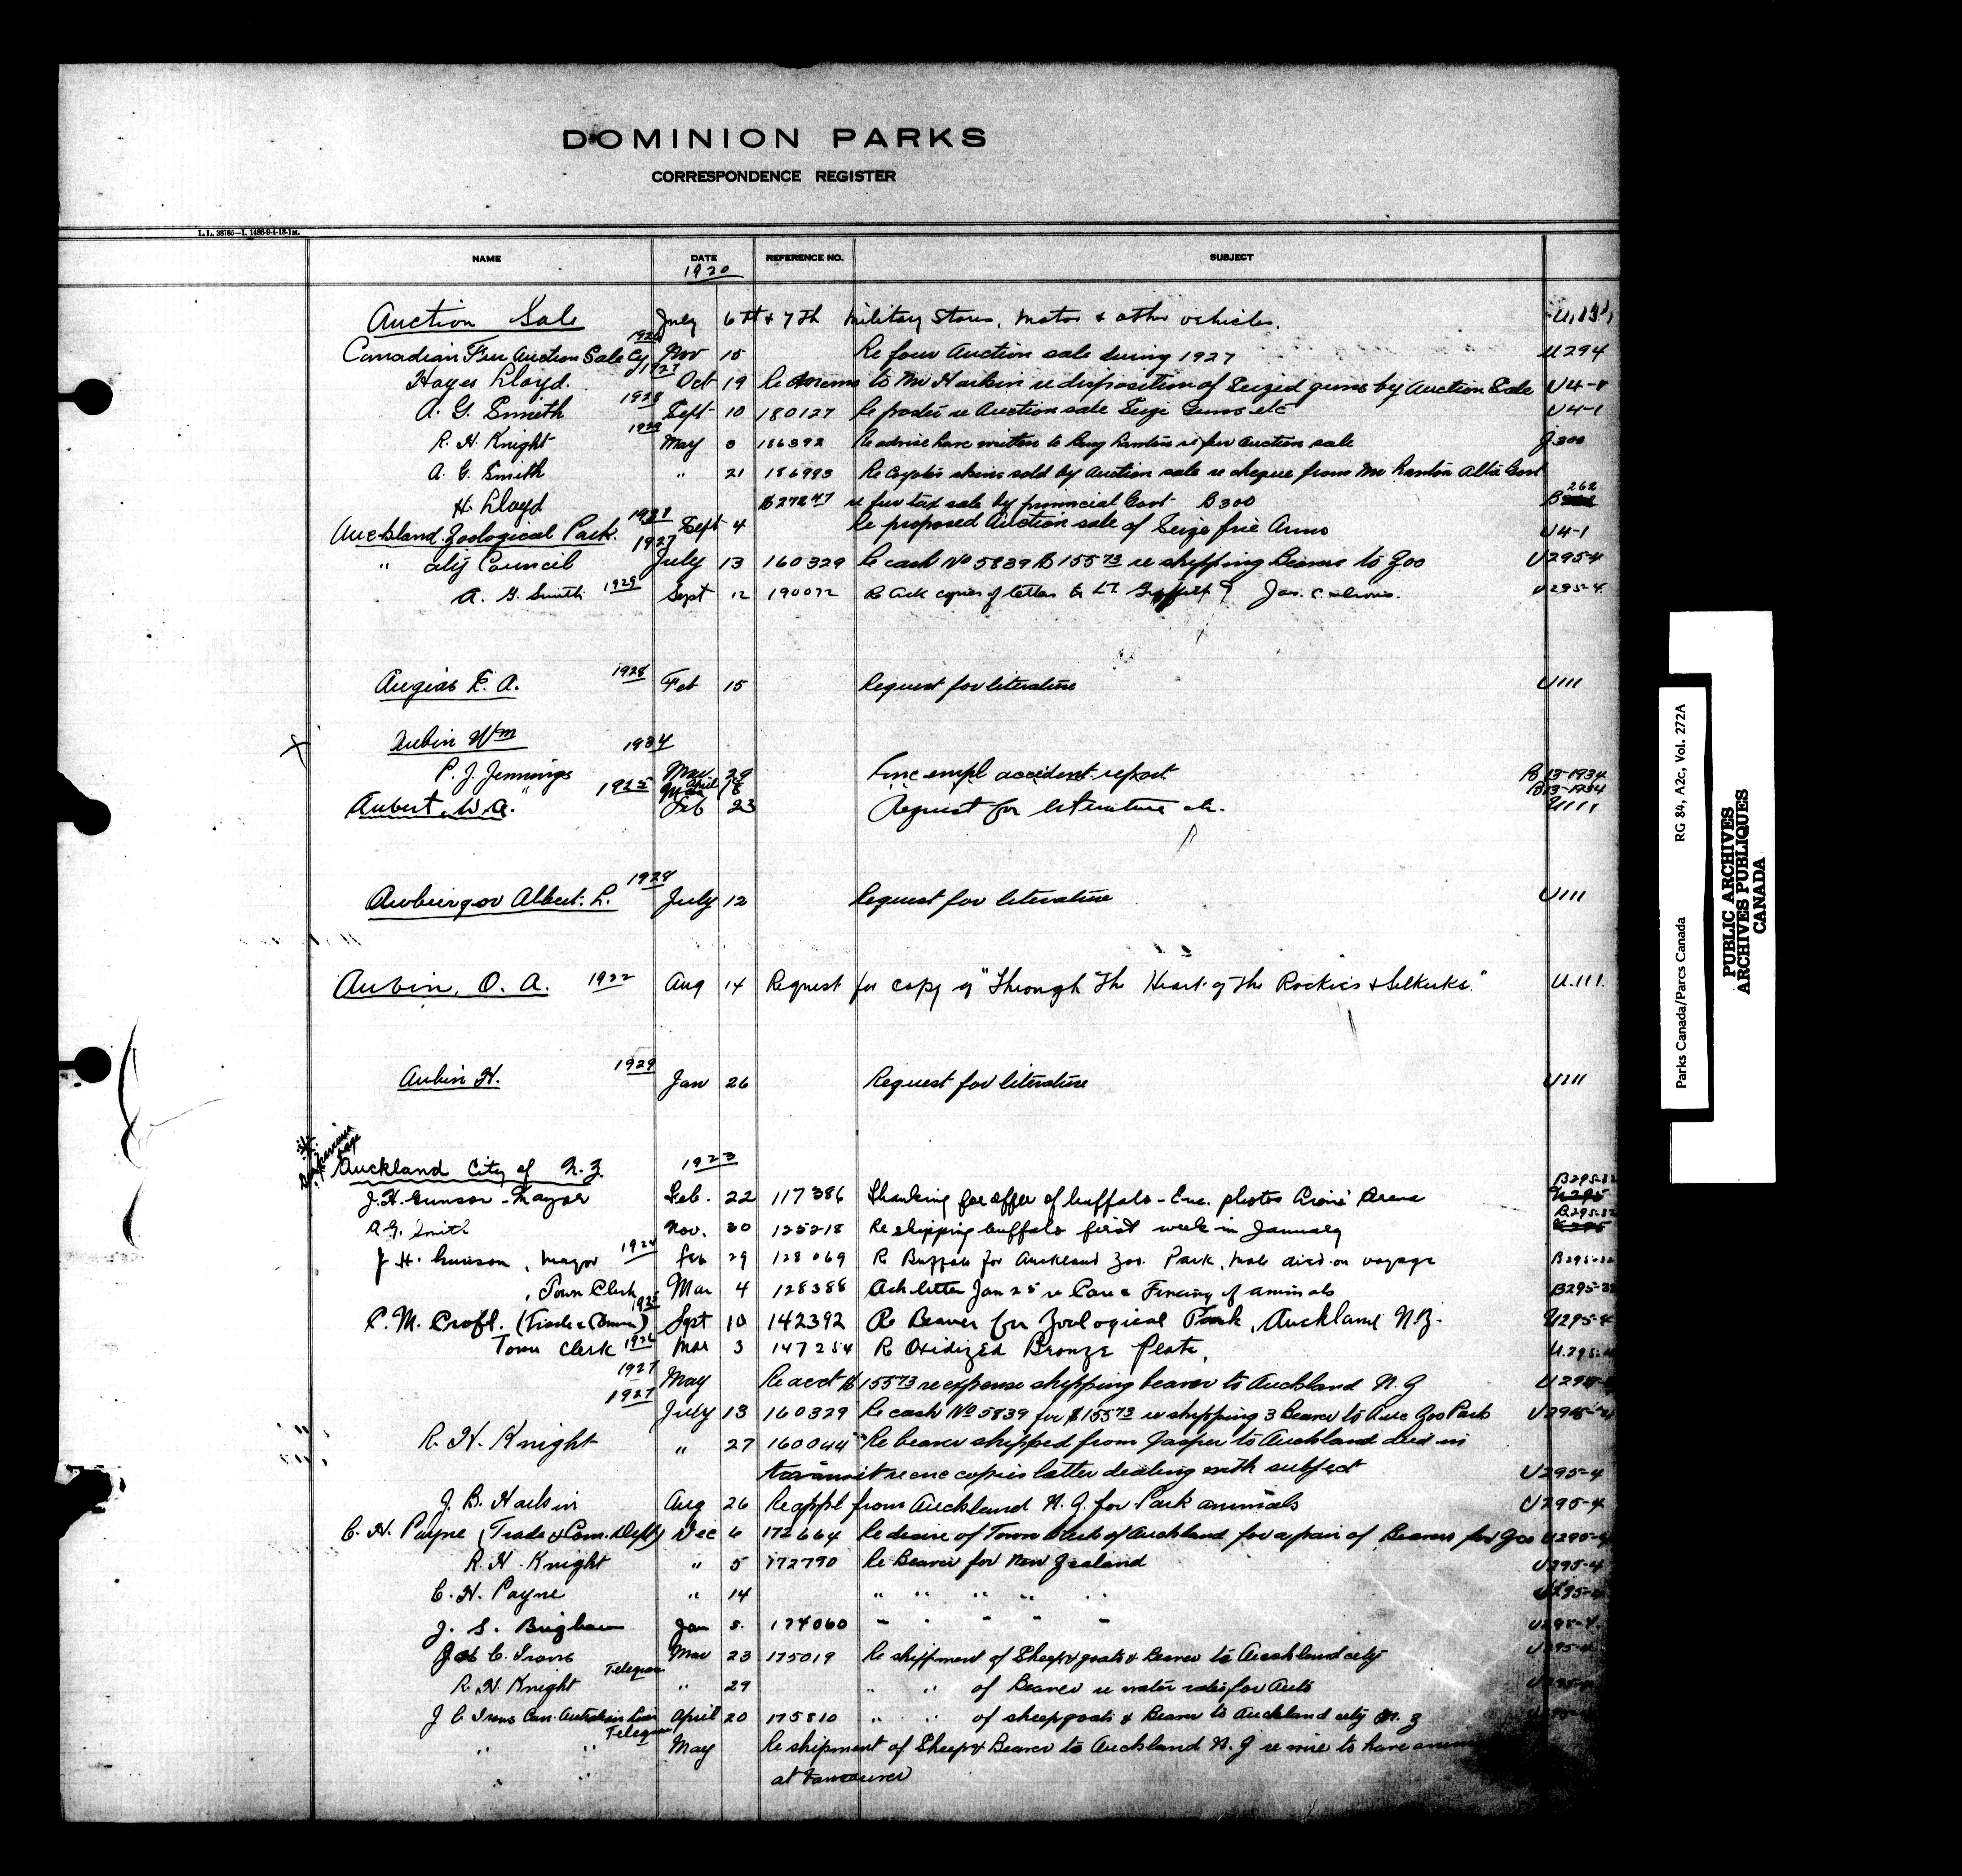 DOMINION PARKS
CORRESPONDENCE REGISTER
NAME DATE REFERENCE NO. SUBJECT
1920
Auction Sale July 6th & 7th Military Stores, Motor & other vehicles.
Canadian Fur Auction Sale Co Nov 15 Re four Auction sale during 1927 U294
Hoyes Lloyd. 1927 Oct 19 Re memo to Mr Harkin re disposition of Seized guns by Auction Sale U4-1
A. G. Smith 1928 Sept 10 180127 Re poster re Auction sale Seize Guns etc U4-1
R. H. Knight 1929 May 186392 Re advise have written to re fur auction sale J300
A. G. Smith " 21 186993 Re Coyote skins sold by Auction sale re cheque from Mr Alta Govt
H. Lloyd $278.47 re fur tax sale by provincial Govt B300 B 262
1931 Sept 4 Re proposed Auction sale of Seize fire Arms U4-1
Auckland Zoological Park. 1927
" City Council July 13 160329 Re cash No 5839 $155.73 re shipping Beavers to Zoo U295-4
A. G. Smith 1929 Sept 12 190072 Re Ack copies of letters to Jas. C. Irons. U295-4
Augias E. A. 1928 Feb 15 Request for literature U111
Aubin Wm 1934
P. J. Jennings Mar. 29 empl accident report B13-1934
" April 18 " B13-1934
Aubert, W. A. 1925 Feb 23 Request for literature etc. U111
Auburger Albert. L. 1928 July 12 Request for literature U111
Aubin, O. A. 1922 Aug 14 Request for copy of "Through The Heart of The Rockies & Selkirks" U.111.
Aubin H. 1929 Jan 26 Request for literature U111
Auckland City of N.Z. 1923
J. H. Gunson - Mayor Feb. 22 117386 Thanking for offer of buffalo - Enc. photos B295-32
A. G. Smith Nov. 30 125218 Re shipping buffalo first week in January B295-32
J. H. Gunson, Mayor 1924 Feb 29 128069 Re Buffalo for Auckland Zoo. Park, male died on voyage B295-32
, Town Clerk Mar 4 128388 Ack letter Jan 25 re Care & Fencing of animals B295-32
C. M. Croft. (Trade & Comm) 1925 Sept 10 142392 Re Beaver for Zoological Park, Auckland N.Z. U295-4
Town Clerk 1926 Mar 3 147254 Re Oxidized Bronze Plate, U.295-4
1927 May Re acct $155.73 re expense shipping beaver to Auckland N.Z U295-4
1927
July 13 160329 Re cash No 5839 for $155.73 re shipping 3 Beaver to Auc Zoo Park U295-4
R. H. Knight " 27 160044 Re beaver shipped from Jasper to Auckland died in
transit re enc copies letter dealing with subject U295-4
J. B. Harkin Aug 26 Re appl from Auckland N.Z. for Park animals U295-4
C. H. Payne (Trade & Com. Dept) Dec 6 172664 Re desire of Town Clerk of Auckland for a pair of Beavers for Zoo U295-4
R. H. Knight " 5 172790 Re Beaver for New Zealand U295-4
C. H. Payne " 14 " " " " " U295-4
J. S. Brigham Jan 5. 174060 " " " " " U295-4
Jas C. Irons Mar 23 175019 Re shipment of Sheep & goats & Beaver to Auckland city U295-4
R. H. Knight Telegram " 29 " " of Beaver re water rates for Auto
J C Irons Can. Australian Line April 20 175810 " " of sheep goats & Beaver to Auckland city N. Z
" " Telegram May Re shipment of Sheep & Beaver to Auckland N.Z re wire to have
" " at Vancouver
Parks Canada/Parcs Canada RG 84, A2c, Vol. 272A
PUBLIC ARCHIVES
ARCHIVES PUBLIQUES
CANADA